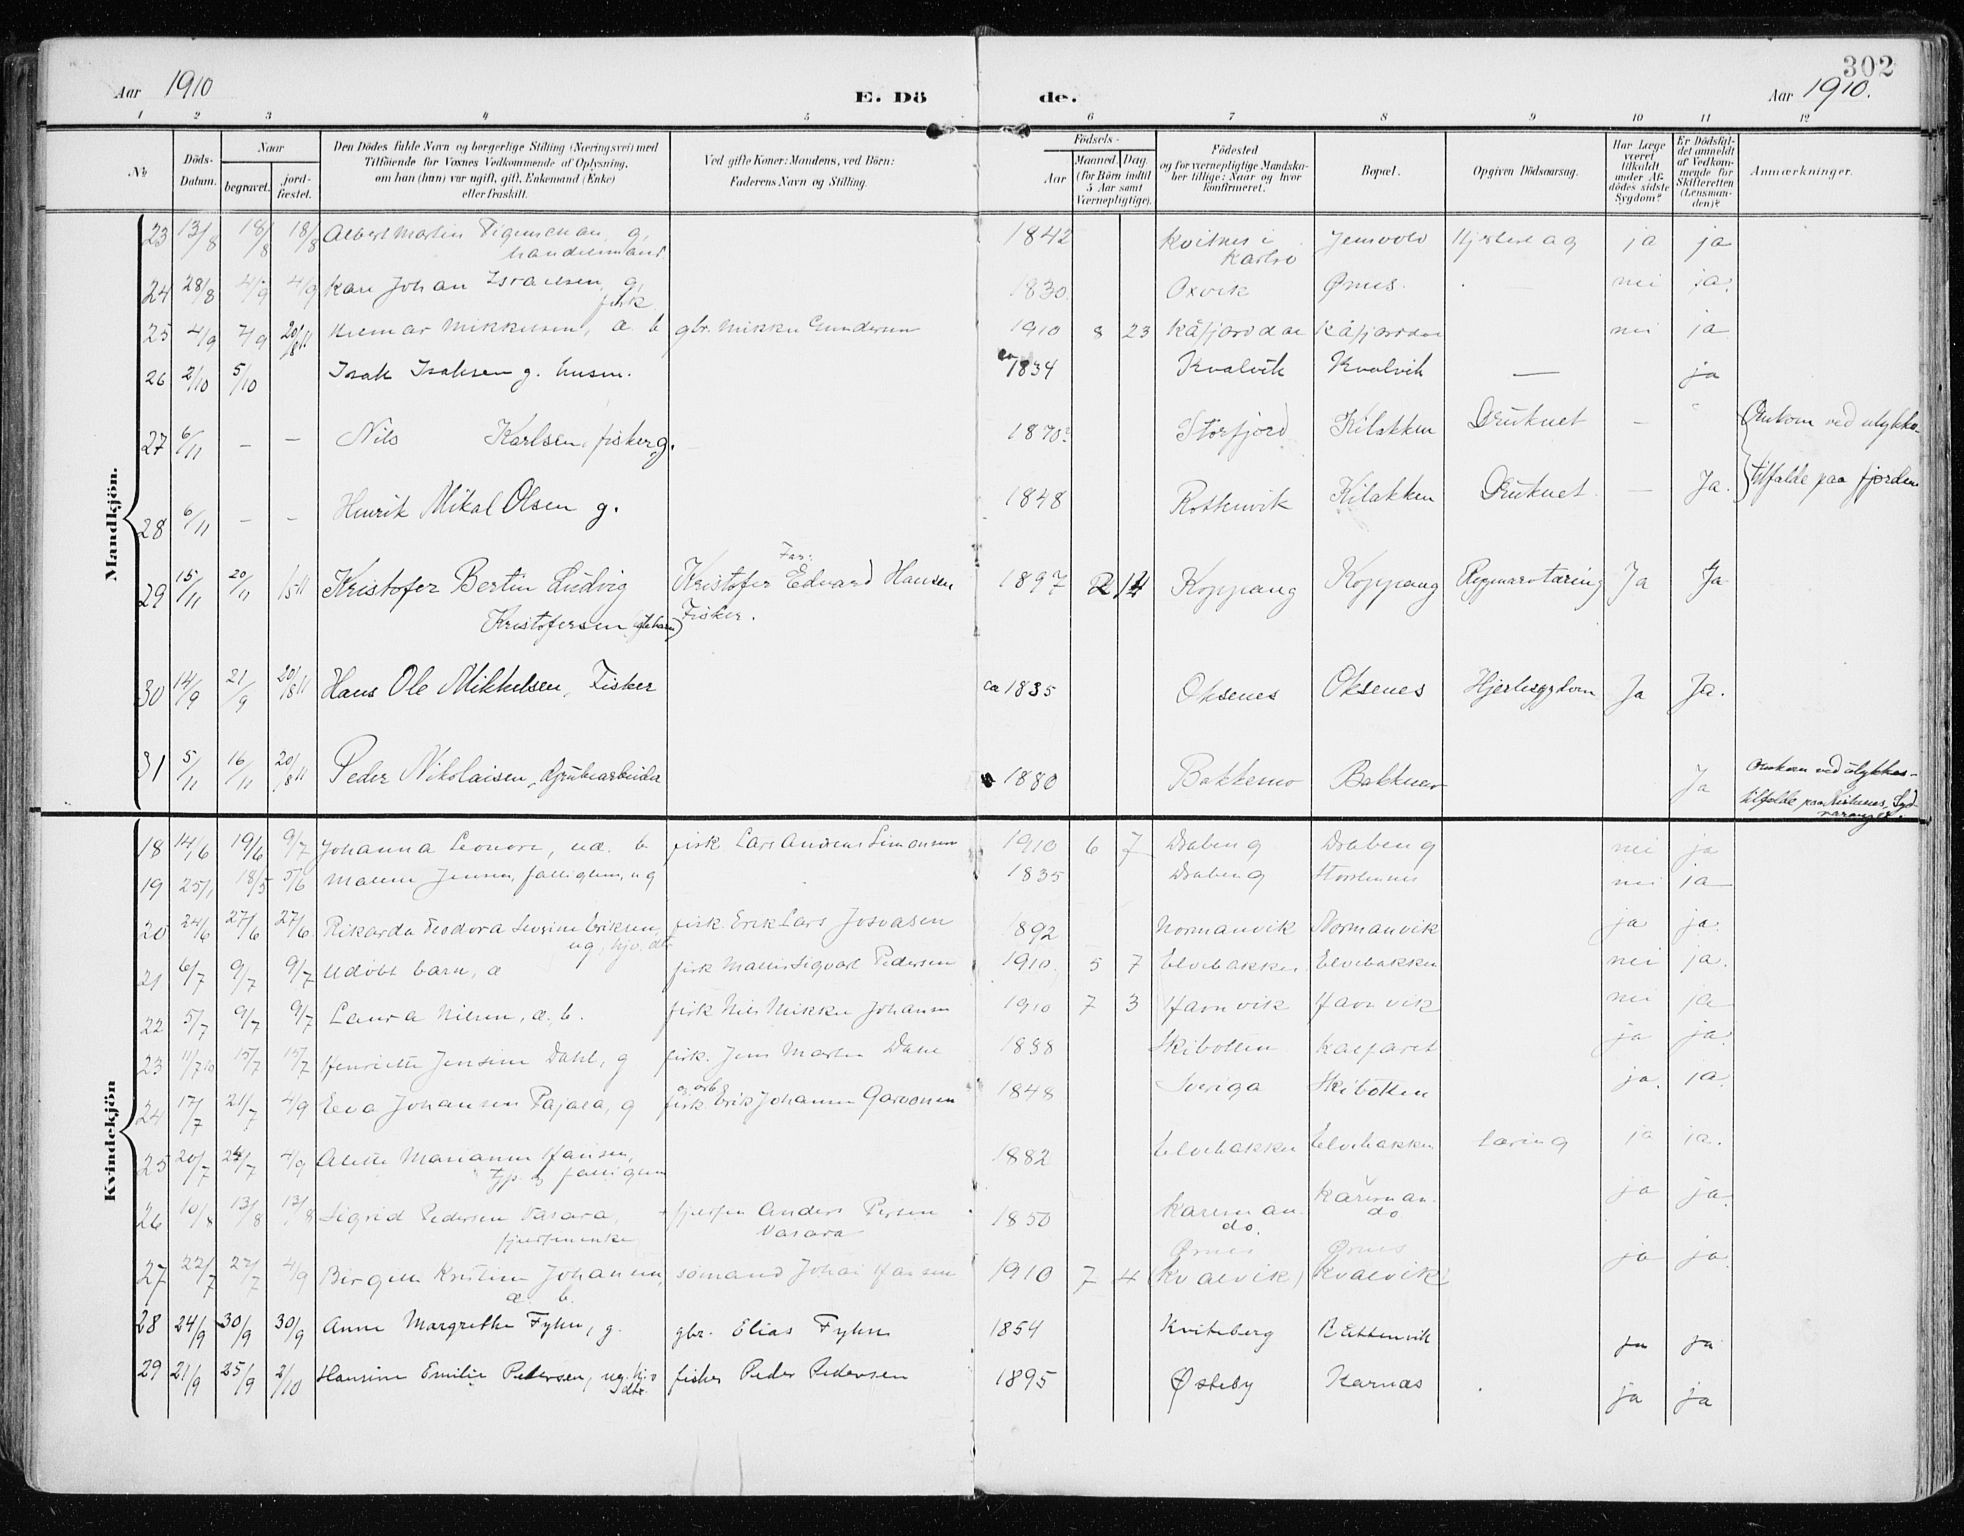 302
Aar 1910 E. Döde. Aar 1910.
1 2 3 4 5 6 7 8 9 10 11 12
№
Döds-Datum.
Naar
begravet.
jordfæstet.
Den Dödes fulde Navn og borgerlige Stilling (Næringsvei) med
Tilföiende for Voxnes Vedkommende af Oplysning,
om han (hun) var ugift, gift, Enkemand (Enke)
eller fraskilt.
Ved gifte Koner: Mandens, ved Börn:
Faderens Navn og Stilling.
Födsels-
Aar
Maaned. Dag.
(for Börn indtil
5 Aar samt
Værnepligtige).
Födested
og for værnepligtige Mandskaber tillige: Naar og hvor
konfirmeret.
Bopæl.
Opgiven Dödsaarsag.
Har Læge
været
tilkaldt
under Afdödes sidste
Sygdom?
Er Dödsfaldet anmeldt
af Vedkommende for
Skifteretten
(Lensmanden)?
Anmærkninger.
Mandkjön.
23 13/8 18/8 18/8 Albert Martin g, handelsmand 1842 Kvitnes i Karlsö Jensvold Hjerteslag ja ja
24 28/8 4/9 4/9 Karl Johan Israelsen, g, fisk 1830 Oxvik Ørnes. — nei ja.
25 4/9 7/9 20/8 11 Hilmar Mikkelsen, æ. b gbr. Mikkel Gundersen 1910 8 23 Kåfjorddal Kåfjorddal nei ja
26 2/10 5/10 Isak Isaksen g. husm. ca 1834 Kvalvik Kvalvik — ja
27 6/11 — — Nils Karlsen, fisker, g. 1870? Storfjord Kilakken Druknet — " Omkom ved ulykkes-
28 6/11 — — Henrik Mikal Olsen g. 1848 Rottenvik Kilakken Druknet — Ja. tilfælde paa fjorden
29 15/11 20/11 Kristofer Bertin Ludvig Far: Kristofer Edvard Hansen 1897 14 Koppang Koppang Rygmarvstæring Ja Ja
Kristofersen Fisker.
30 14/9 21/9 20/8 11 Hans Ole Mikkelsen, Fisker ca 1835 Oksenes Oksenes Hjertesygdom Ja Ja.
31 5/11 16/11 20/8 11 Peder Nikolaisen, Grubearbeider 1880 Bakkemo Bakkemo Ja Omkom ved ulykkes-
tilfælde paa Kirkenes, Syd-
varanger.
Kvindekjön
18 14/6 19/6 9/7 Johanna Leonore, uæ. b fisk Lars Andreas Simonsen 1910 6 7 Draben g Draben g nei ja
19 25/1 18/5 5/6 Malene Jensen, fattiglem, ug 1835 Draben g nei ja
20 24/6 27/6 27/6 Rikarda Teodora Sevrine Eriksen, fisk. Erik Lars Josvasen 1892 Normanvik Normanvik ja ja.
ug, hjv. dtr
21 6/7 9/7 9/7 Udöbt barn, æ fisk Sigvart Pedersen 1910. 5 7 Elvebakken Elvebakken nei ja.
22 5/7 9/7 9/7 Laura Nilsen, æ. b. fisk Nils Mikkel Johansen 1910 7 3 Havnvik Havnvik nei ja
23 11/7 10 15/7 15/7 Henriette Jensine Dahl, g fisk. Jens Martin Dahl 1838 Skibotten Kalfaret ja ja.
24 17/7 21/7 4/9 Eeva Johansen Pajala, g fisk Erik Johansen Garvonen 1848 Sveriga Skibotten ja. ja.
25 20/7 24/7 4/9 Alette Marianne Hansen, 1882 Elvebakken Elvebakken tæring ja ja.
fattiglem
26 10/8 13/8 13/8 Sigrid Pedersen Vasara, Anders Persen Vasara 1850 Karemando. Karemando ja ja.
27 22/7 27/7 4/9 Birgitte Kristine Johansen, sömand Johan Hansen 1910 7 4 Ørnes (Kvalvik) Ørnes (Kvalvik) ja ja.
æ. b.
28 24/9 30/9 30/9 Anne Margrethe Fyhn, g. gbr. Elias Fyhn 1854 Kviteberg Rottenvik ja ja
29 21/9 25/9 2/10 Hansine Emilie Pedersen, ug. hjv dtr. fisker Peder Pedersen 1895 Østeby Karnæs ja ja